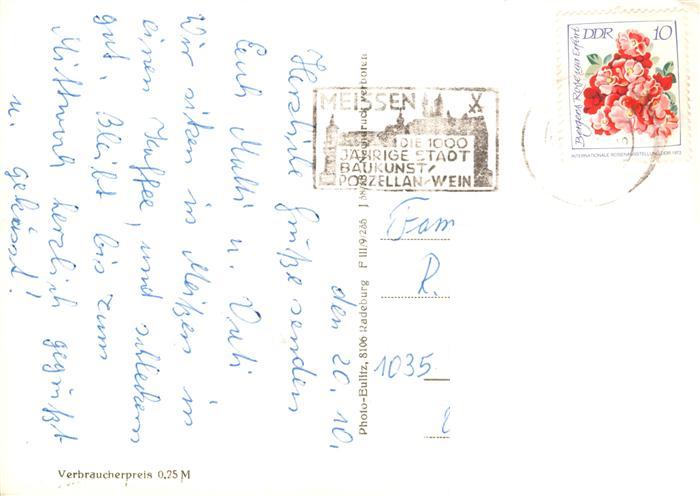 den 20.10.
Herzliche Grüße senden
Euch Mutti u. Vati
Wir sitzen in Meißen in
einen Kaffee, und schleckern
gut. Bleibt bis zum
Mittwoch herzlich gegrüßt
u. geküsst!
Verbraucherpreis 0,25 M
Photo-Eulitz, 8106 Radeburg F III/9/266
MEISSEN
DIE 1000
JÄHRIGE STADT
BAUKUNST/
PORZELLAN/WEIN
DDR 10
Bergers Rose aus Erfurt
INTERNATIONALE ROSENAUSSTELLUNG DDR 1972
Fam
R.
1035